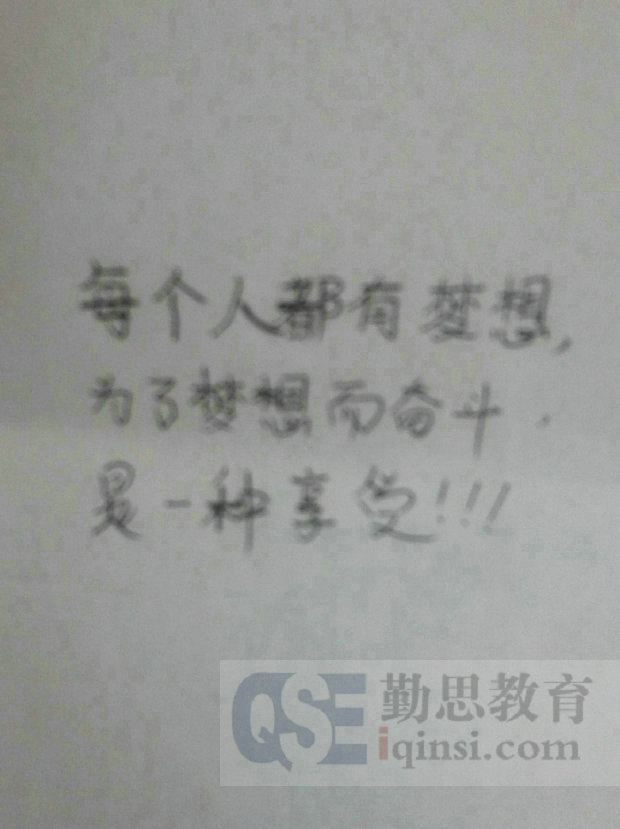 每个人都有梦想,
为了梦想而奋斗,
是一种享受!!!
QSE 勤思教育
iqinsi.com